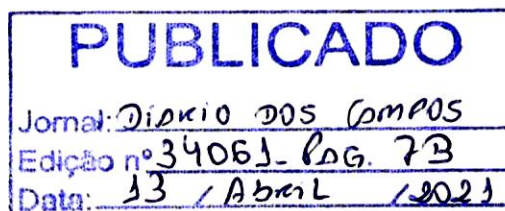 PUBLICADO
Jornal: DIÁRIO DOS CAMPOS
Edição nº 34061 - PAG. 7B
Data: 13 / ABRIL / 2021